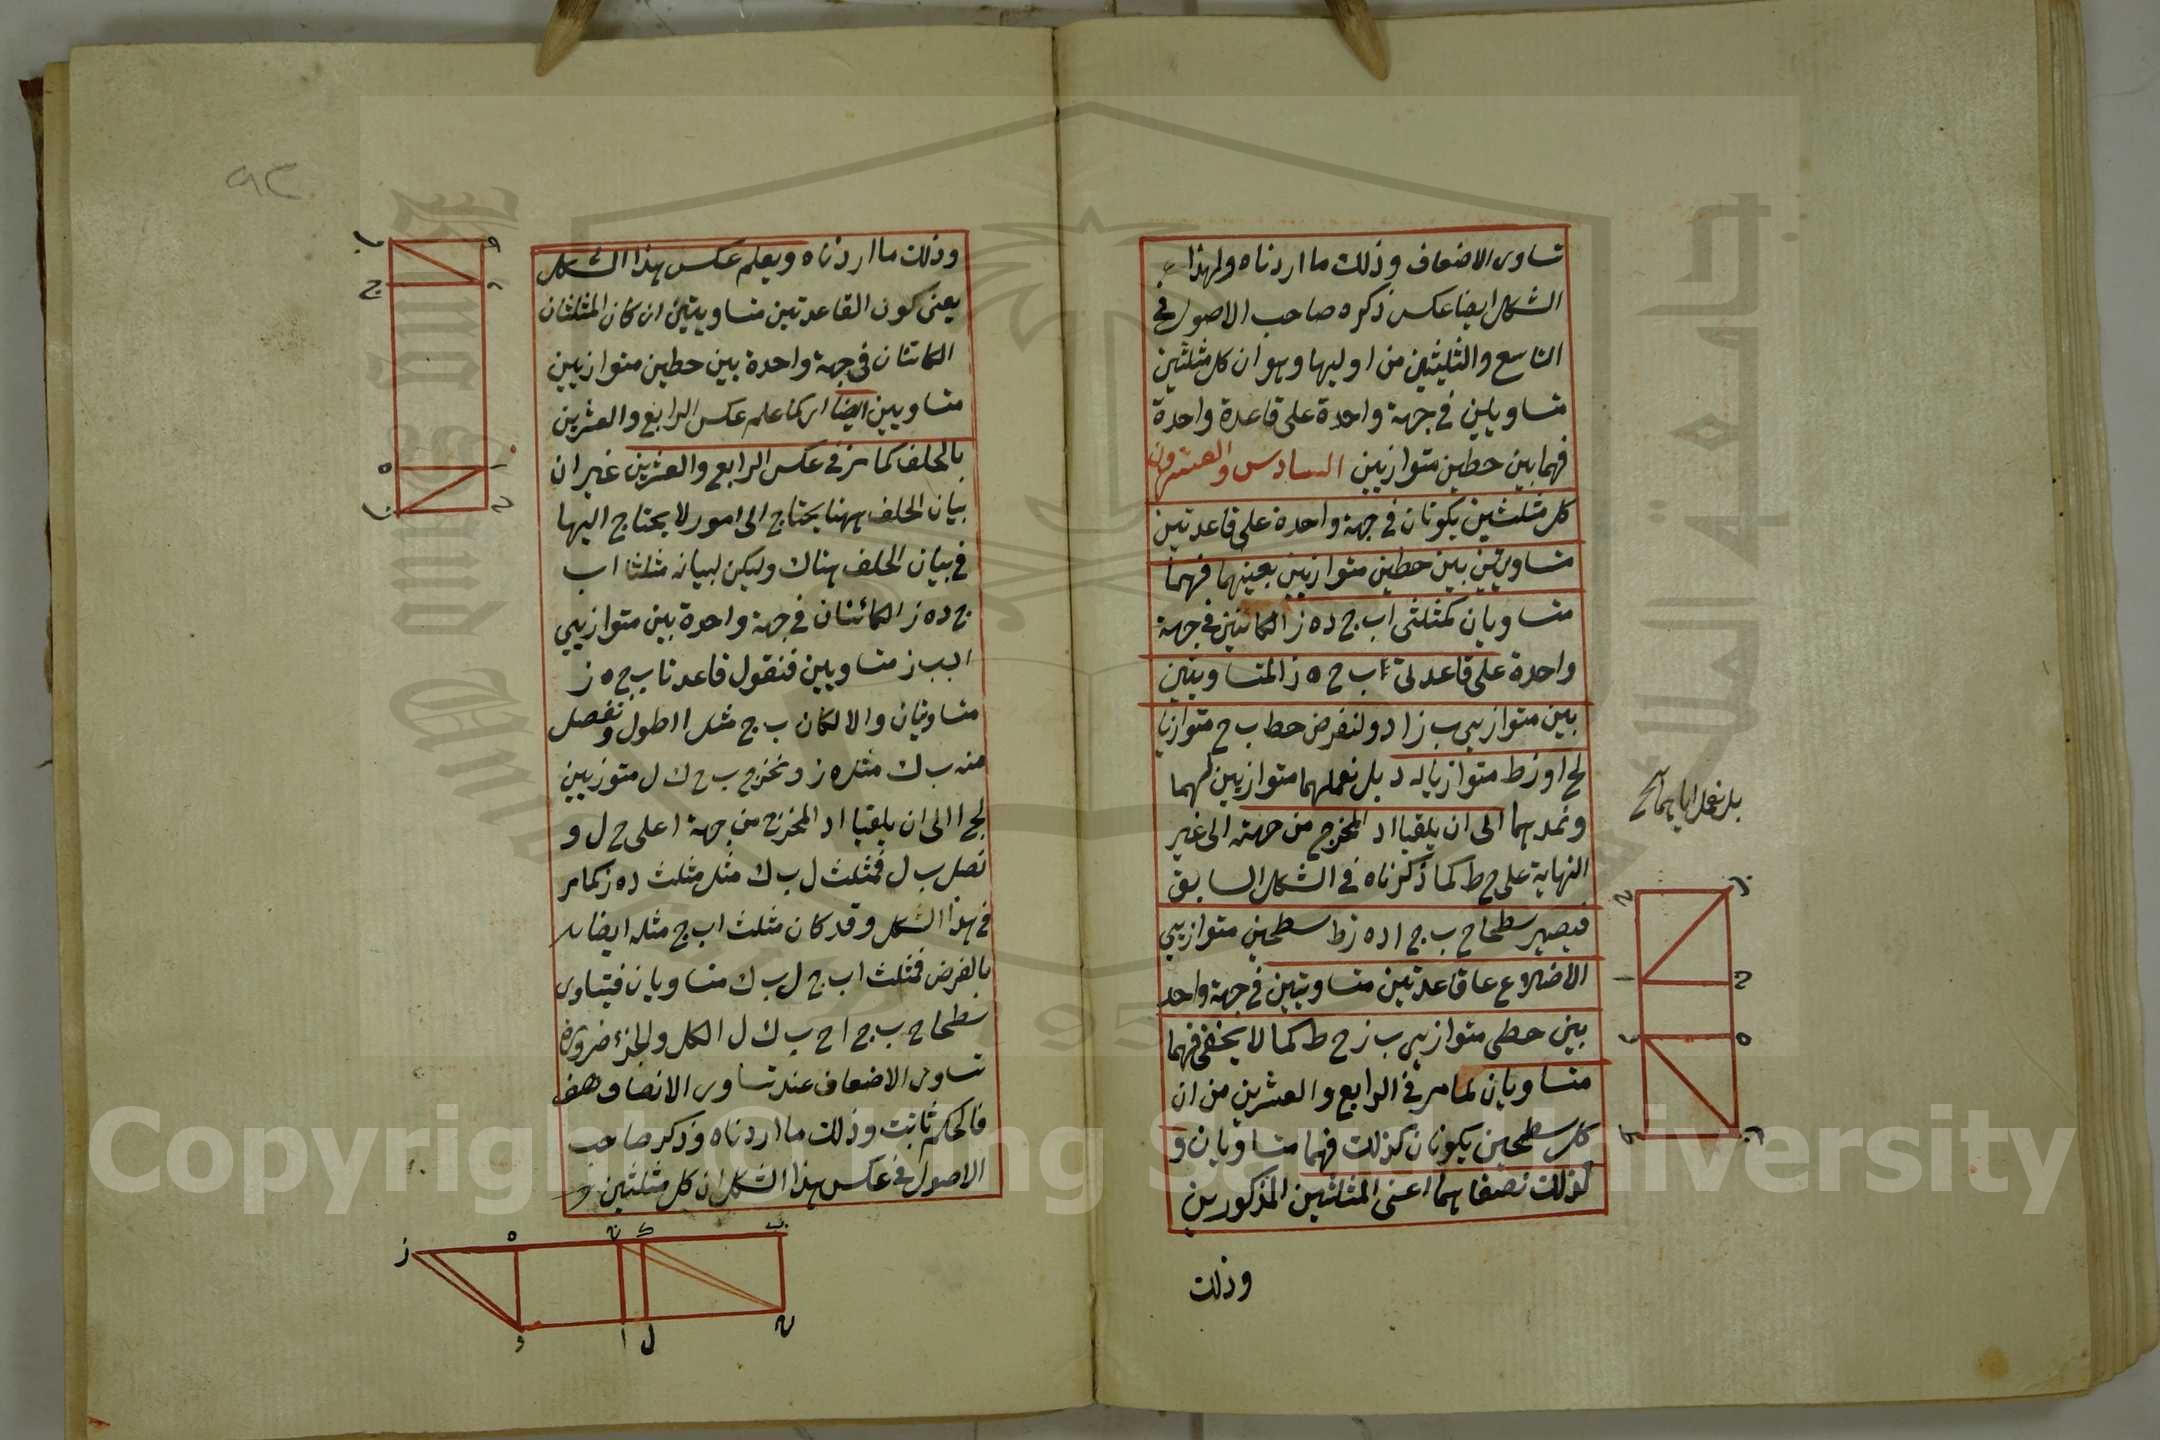 تساوى الاضعاف وذلك ما اردناه ولهذا
الشكل ايضا عكس ذكره صاحب الاصول في
التاسع والثلثين من اوليها وهو ان كل مثلثين
متساويين في جهة واحدة على قاعدة واحدة
فهما بين خطين متوازيين السادس والعشرون
كل مثلثين يكونان في جهة واحدة على قاعدتين
متساويتين بين خطين متوازيين بعينهما فهما
متساويان كمثلثى اب ج ده ز الكائنين في جهة
واحدة على قاعدتى ب ج ه ز المتساويتين
بين متوازيى ب ز اد ولنفرض خط ب ح متوازيا
لج ا وزط متوازيا له د بل نعملهما متوازيين لهما
ونمدهما الى ان يلقيا اد المخرج من جهته الى غير
النهاية على ح ط كما ذكرناه في الشكل السابق
فيصير سطحا ح ب ج ا ده زط سطحين متوازيى
الاضلاع على قاعدتين متساويتين في جهة واحد
بين خطى متوازيى ب ز ح ط كما لا يخفى فهما
متساويان لما مر في الرابع والعشرين من ان
كل سطحين يكونان كذلك فهما متساويان و
كذلك نصفاهما اعنى المثلثين المذكورين
وذلك
وذلك ما اردناه ويعلم عكس هذا الشكل
يعنى كون القاعدتين متساويتين ان كان المثلثان
الكائنان في جهة واحدة بين خطين متوازيين
متساويين ايضا اى كما علم عكس الرابع والعشرين
بالخلف كما مر في عكس الرابع والعشرين غير ان
بيان الخلف ههنا يحتاج الى امور لا يحتاج اليها
في بيان الخلف هناك وليكن لبيانه مثلثا اب
ج ده ز الكائنان في جهة واحدة بين متوازيى
اد ب ز متساويين فنقول قاعدتا ب ج ه ز
متساويتان والا لكان ب ج مثلا اطول ونفصل
منه ب ك مثل ه ز ونخرج ب ح ك ل متوزيين
لج ا الى ان يلقيا اد المخرج من جهة ا على ح ل و
نصل ب ل فمثلث ل ب ك مثل مثلث ده ز كما مر
في هذا الشكل وقد كان مثلث اب ج مثله ايضا
بالفرض فمثلثا اب ج ل ب ك متساويان فيتساوى
سطحا ح ب ج ا ح ب ك ل الكل والجزء ضرورة
تساوى الاضعاف عند تساوى الانصاف هف
فالحكم ثابت وذلك ما اردناه وذكر صاحب
الاصول في عكس هذا الشكل ان كل مثلثين
Copyright © King Saud University